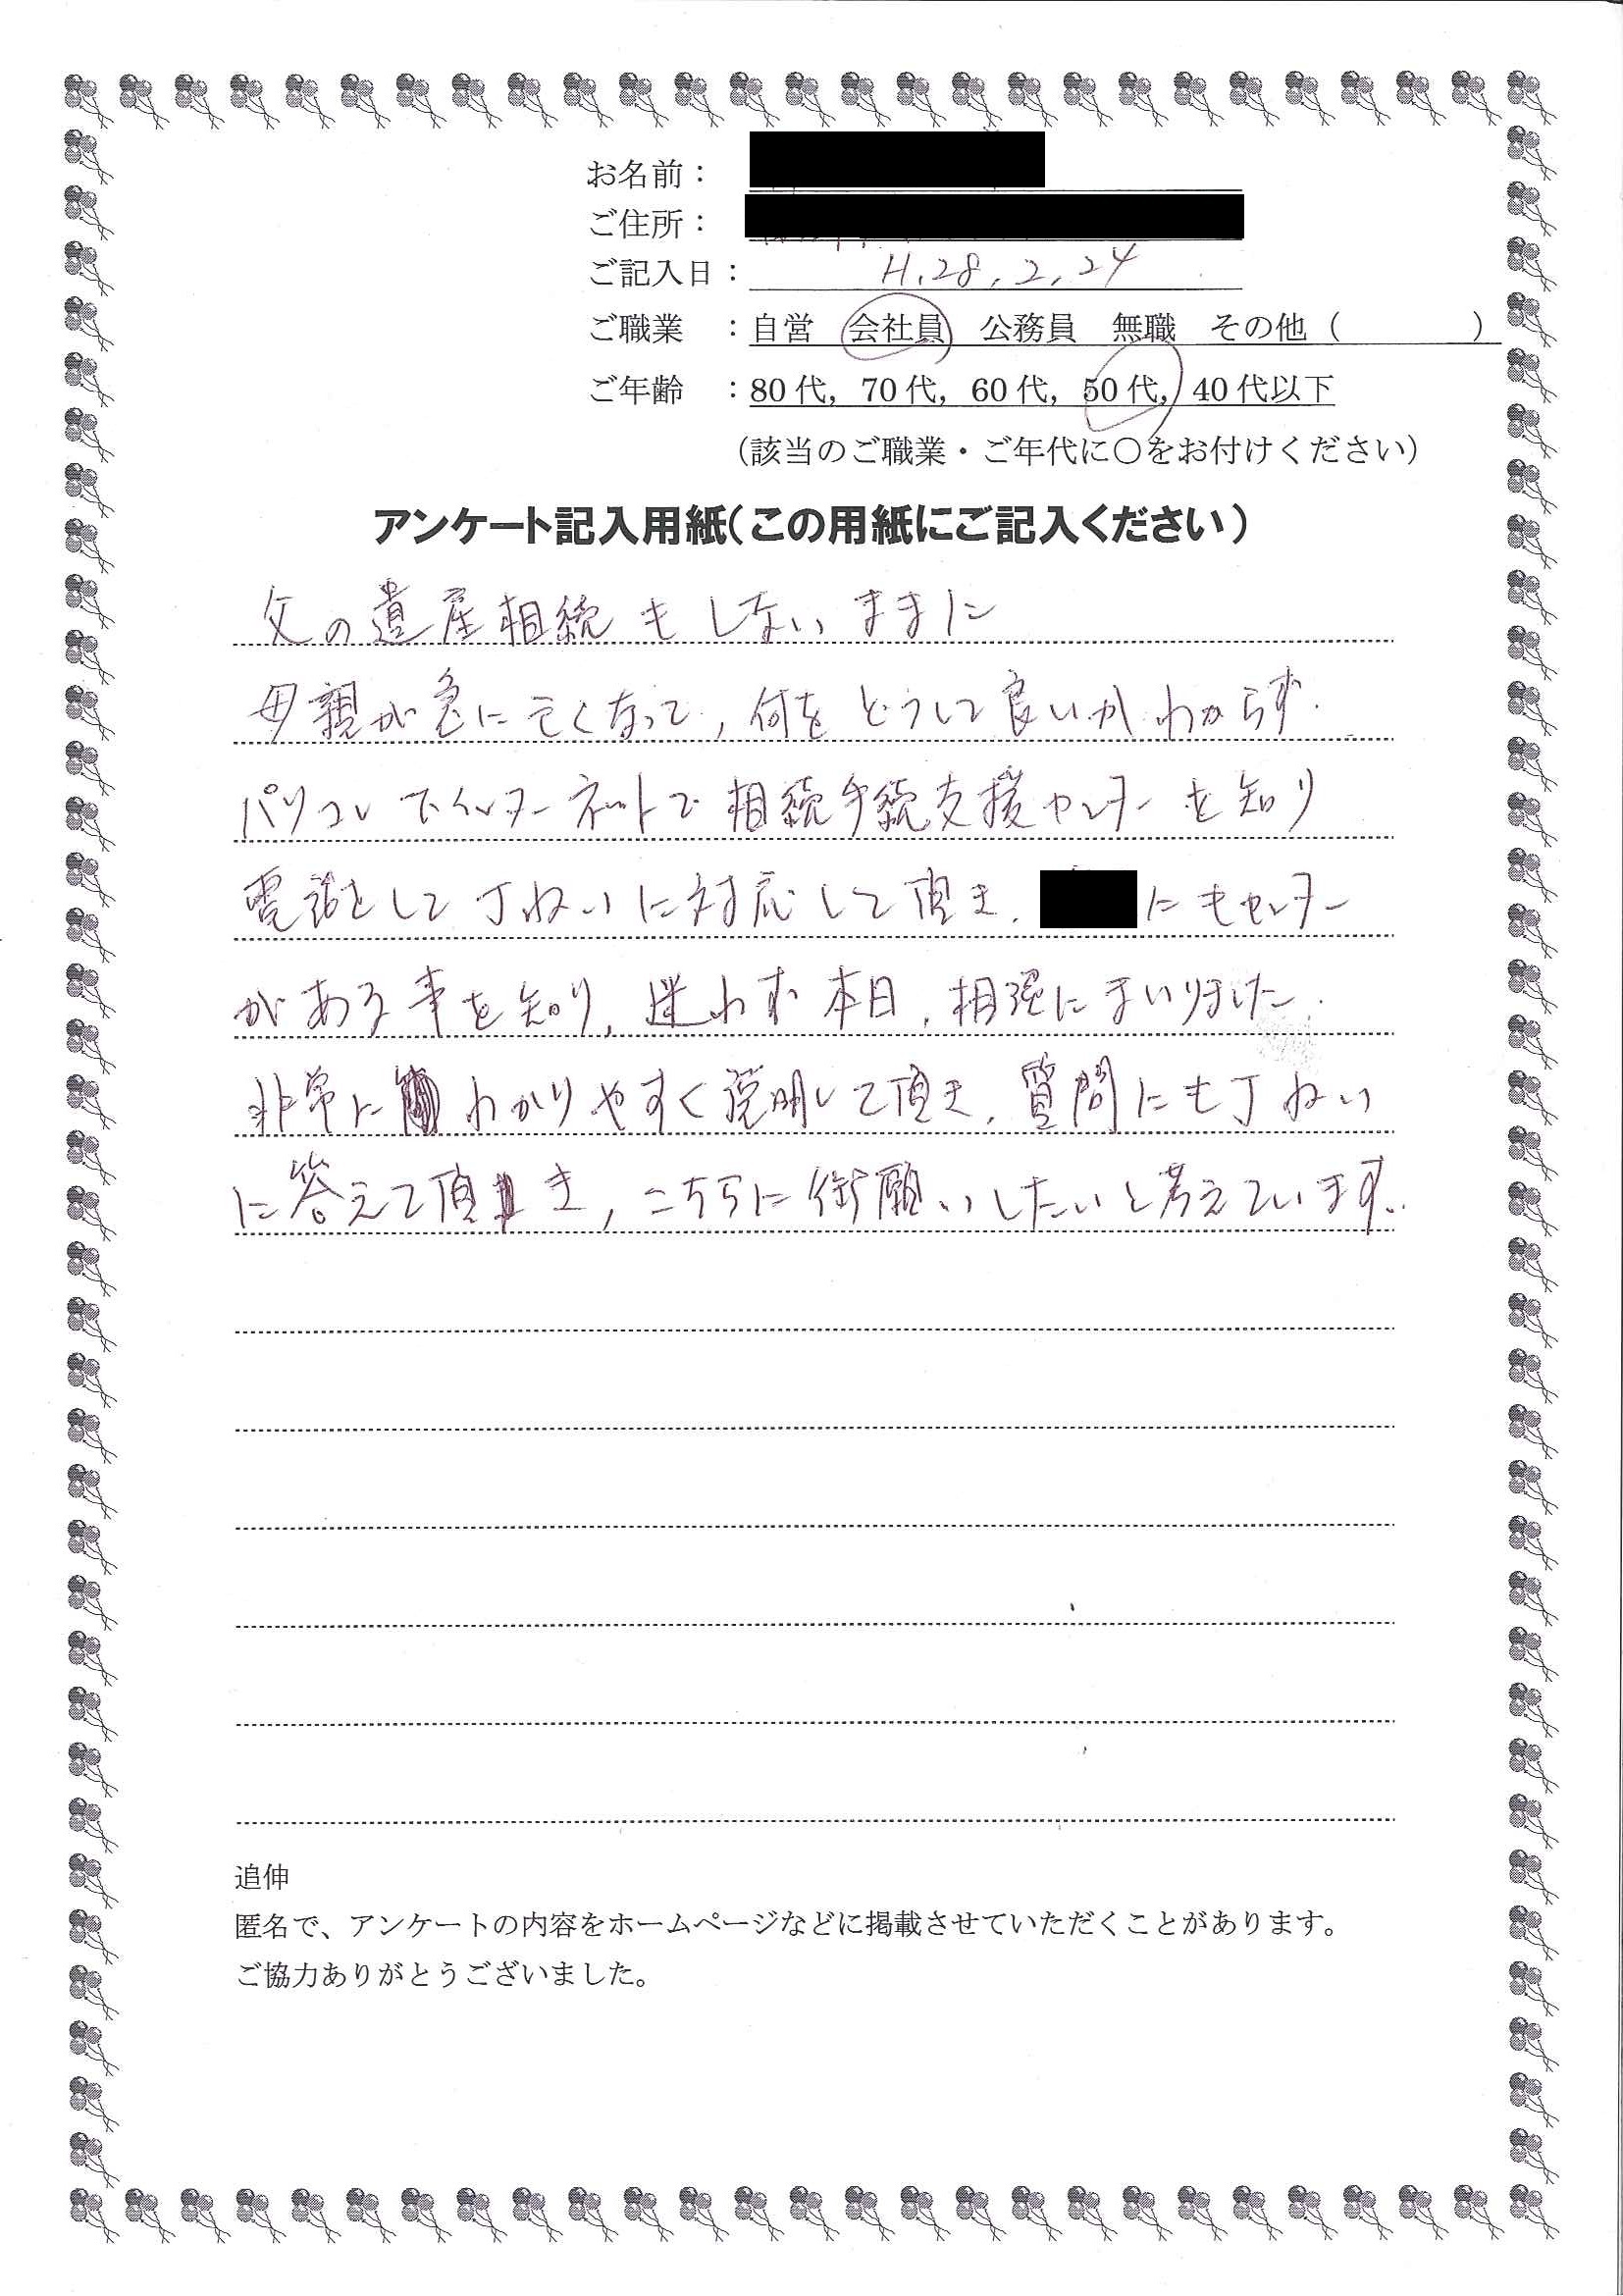 お名前：
ご住所：
ご記入日： H.28.2.24
ご職業 ：自営 会社員 公務員 無職 その他（ ）
ご年齢 ：80代，70代，60代，50代，40代以下
（該当のご職業・ご年代に〇をお付けください）
アンケート記入用紙（この用紙にご記入ください）
父の遺産相続もしないままに
母親が急に亡くなって，何をどうして良いかわからず．
パソコンでインターネットで相続手続支援センターを知り
電話をして丁ねいに対応して頂き． にもセンター
がある事を知り，迷わず本日，相談にまいりました．
非常にわかりやすく説明して頂き．質問にも丁ねい
に答えて頂き，こちらに御願いしたいと考えています．
追伸
匿名で、アンケートの内容をホームページなどに掲載させていただくことがあります。
ご協力ありがとうございました。